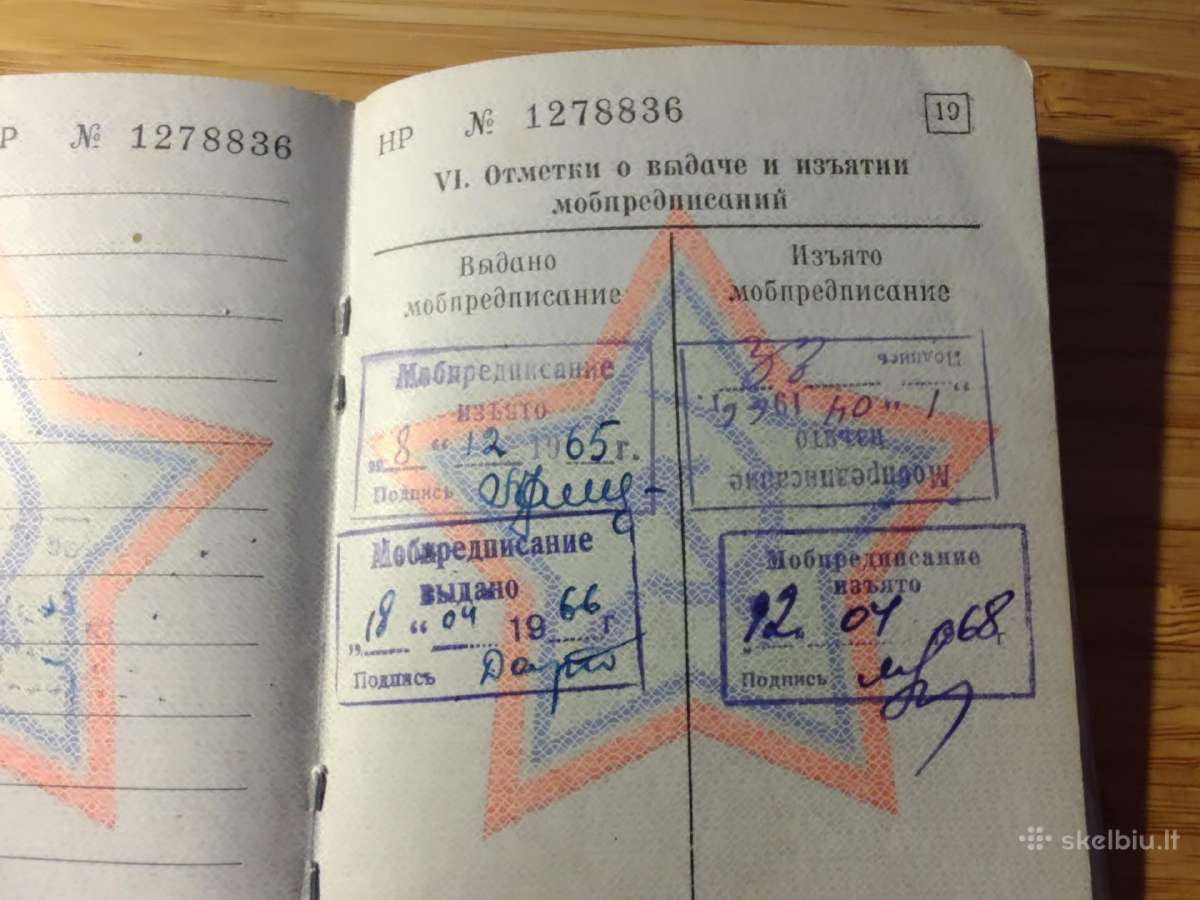 Р № 1278836
НР № 1278836
19
VI. Отметки о выдаче и изъятии
мобпредписаний
Выдано
мобпредписание
Изъято
мобпредписание
Мобпредписание
изъято
„ 8 “ 12 1965 г.
Подпись
Мобпредписание
изъято
„ 1 “ 04 1966 г.
Подпись
Мобпредписание
выдано
„ 18 “ 04 1966 г
Подпись
Мобпредписание
изъято
„ 12 “ 04 1968 г
Подпись
skelbiu.lt